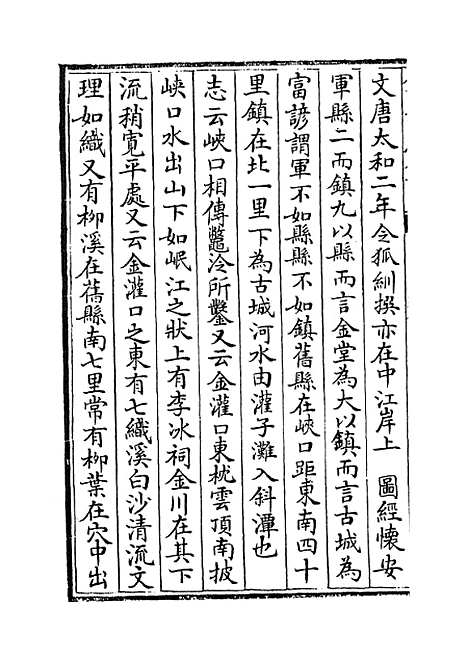 文唐太和二年令狐紃撰亦在中江岸上　圖經懷安
軍縣二而鎮九以縣而言金堂為大以鎮而言古城為
富諺謂軍不如縣縣不如鎮舊縣在峽口距東南四十
里鎮在北一里下為古城河水由灌子灘入斜潭也
志云峽口相傳鼈冷所鑿又云金灌口東枕雲頂南披
峽口水出山下如岷江之狀上有李冰祠金川在其下
流稍寬平處又云金灌口之東有七織溪白沙清流文
理如織又有柳溪在舊縣南七里常有柳葉在穴中出